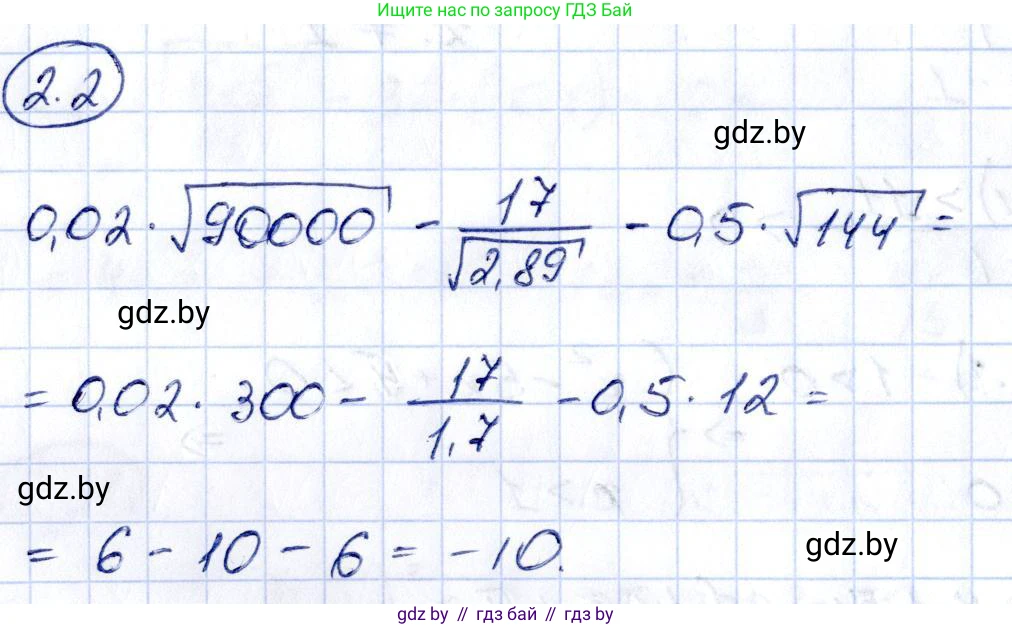 Ищите нас по запросу ГДЗ Бай
2.2
gdz.by
0,02 · √90000 - 17/√2,89 - 0,5 · √144 =
gdz.by
= 0,02 · 300 - 17/1,7 - 0,5 · 12 =
gdz.by
= 6 - 10 - 6 = -10.
gdz.by
gdz.by // гдз бай // gdz by